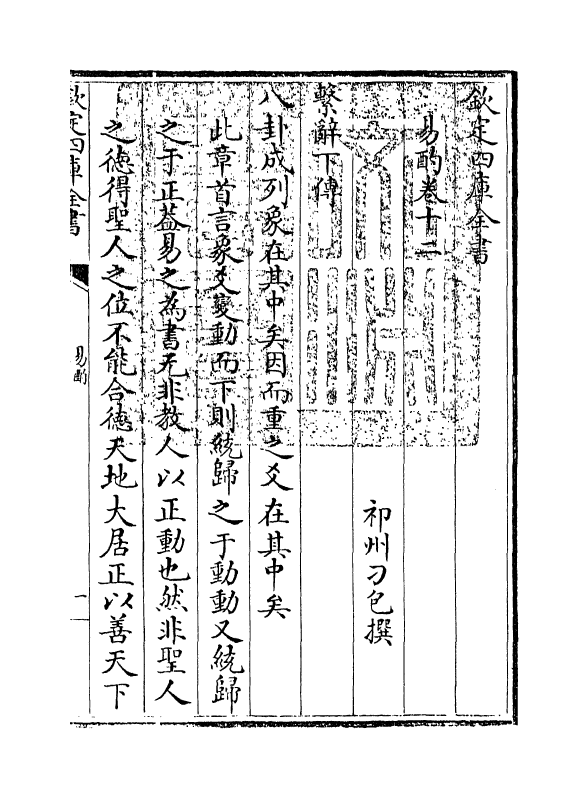 欽定四庫全書
易酌卷十二
祁州刁包撰
繫辭下傳
八卦成列象在其中矣因而重之爻在其中矣
此章首言象爻變動而下則統歸之于動動又統歸
之于正葢易之為書无非教人以正動也然非聖人
之德得聖人之位不能合德天地大居正以善天下
欽定四庫全書
易酌
一